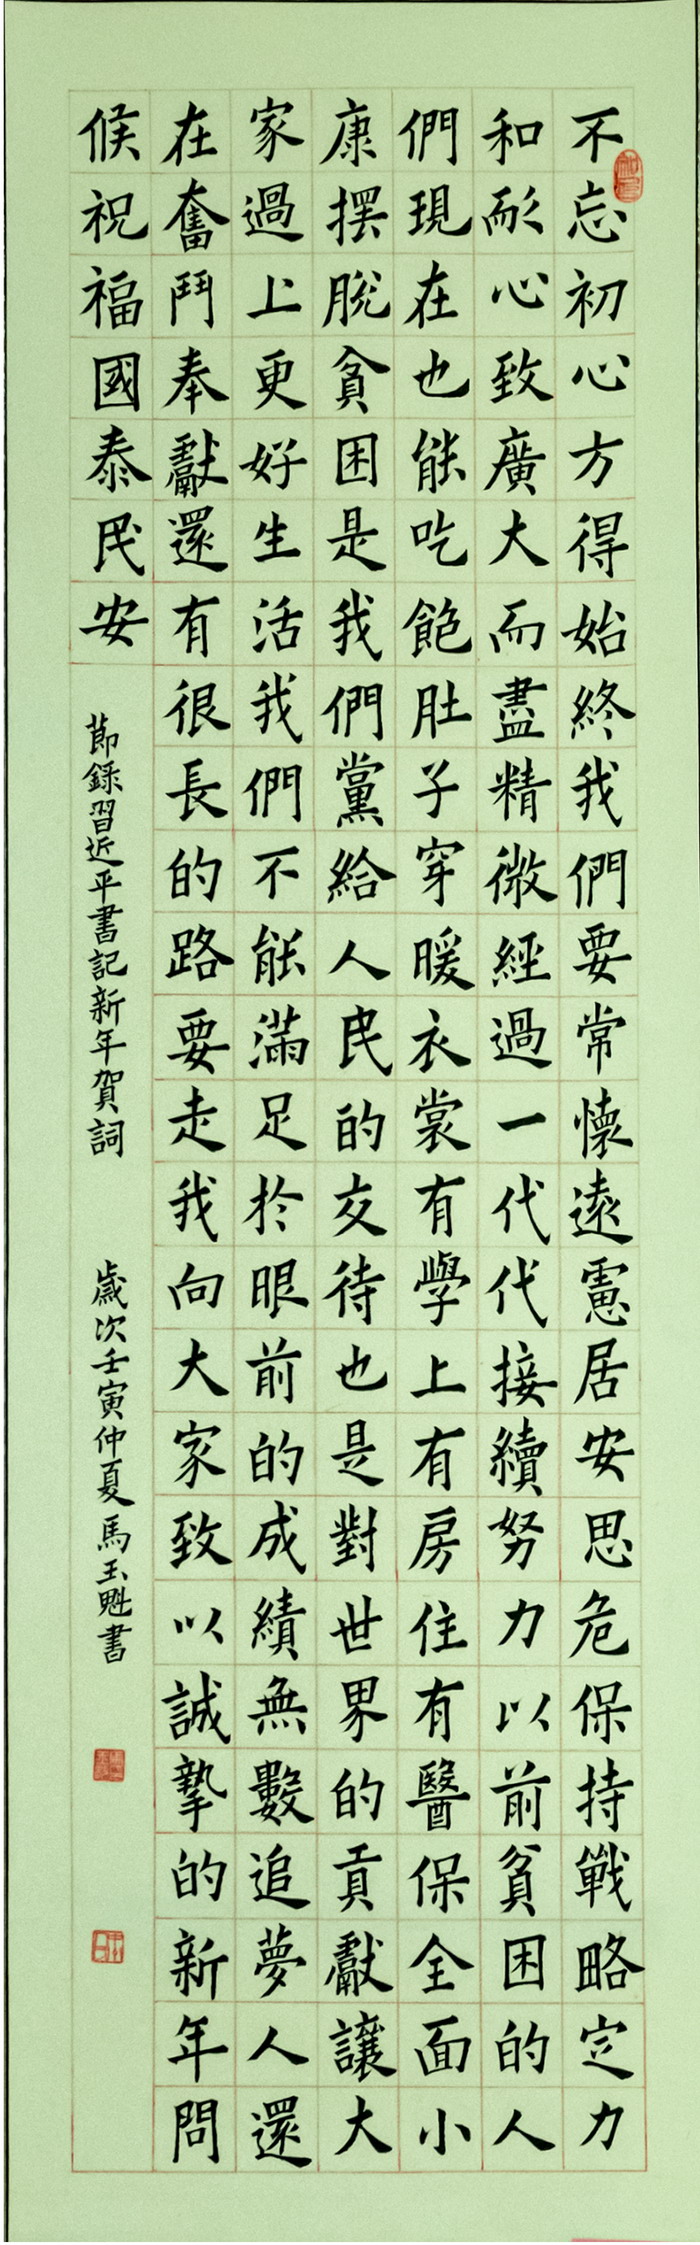 不忘初心方得始終我們要常懷遠慮居安思危保持戰略定力
和耐心致廣大而盡精微經過一代代接續努力以前貧困的人
們現在也能吃飽肚子穿暖衣裳有學上有房住有醫保全面小
康擺脫貧困是我們黨給人民的交待也是對世界的貢獻讓大
家過上更好生活我們不能滿足於眼前的成績無數追夢人還
在奮鬥奉獻還有很長的路要走我向大家致以誠摯的新年問
候祝福國泰民安
節錄習近平書記新年賀詞
歲次壬寅仲夏馬玉魁書